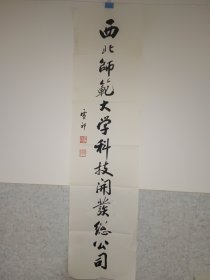 西北師範大学科技開發総公司